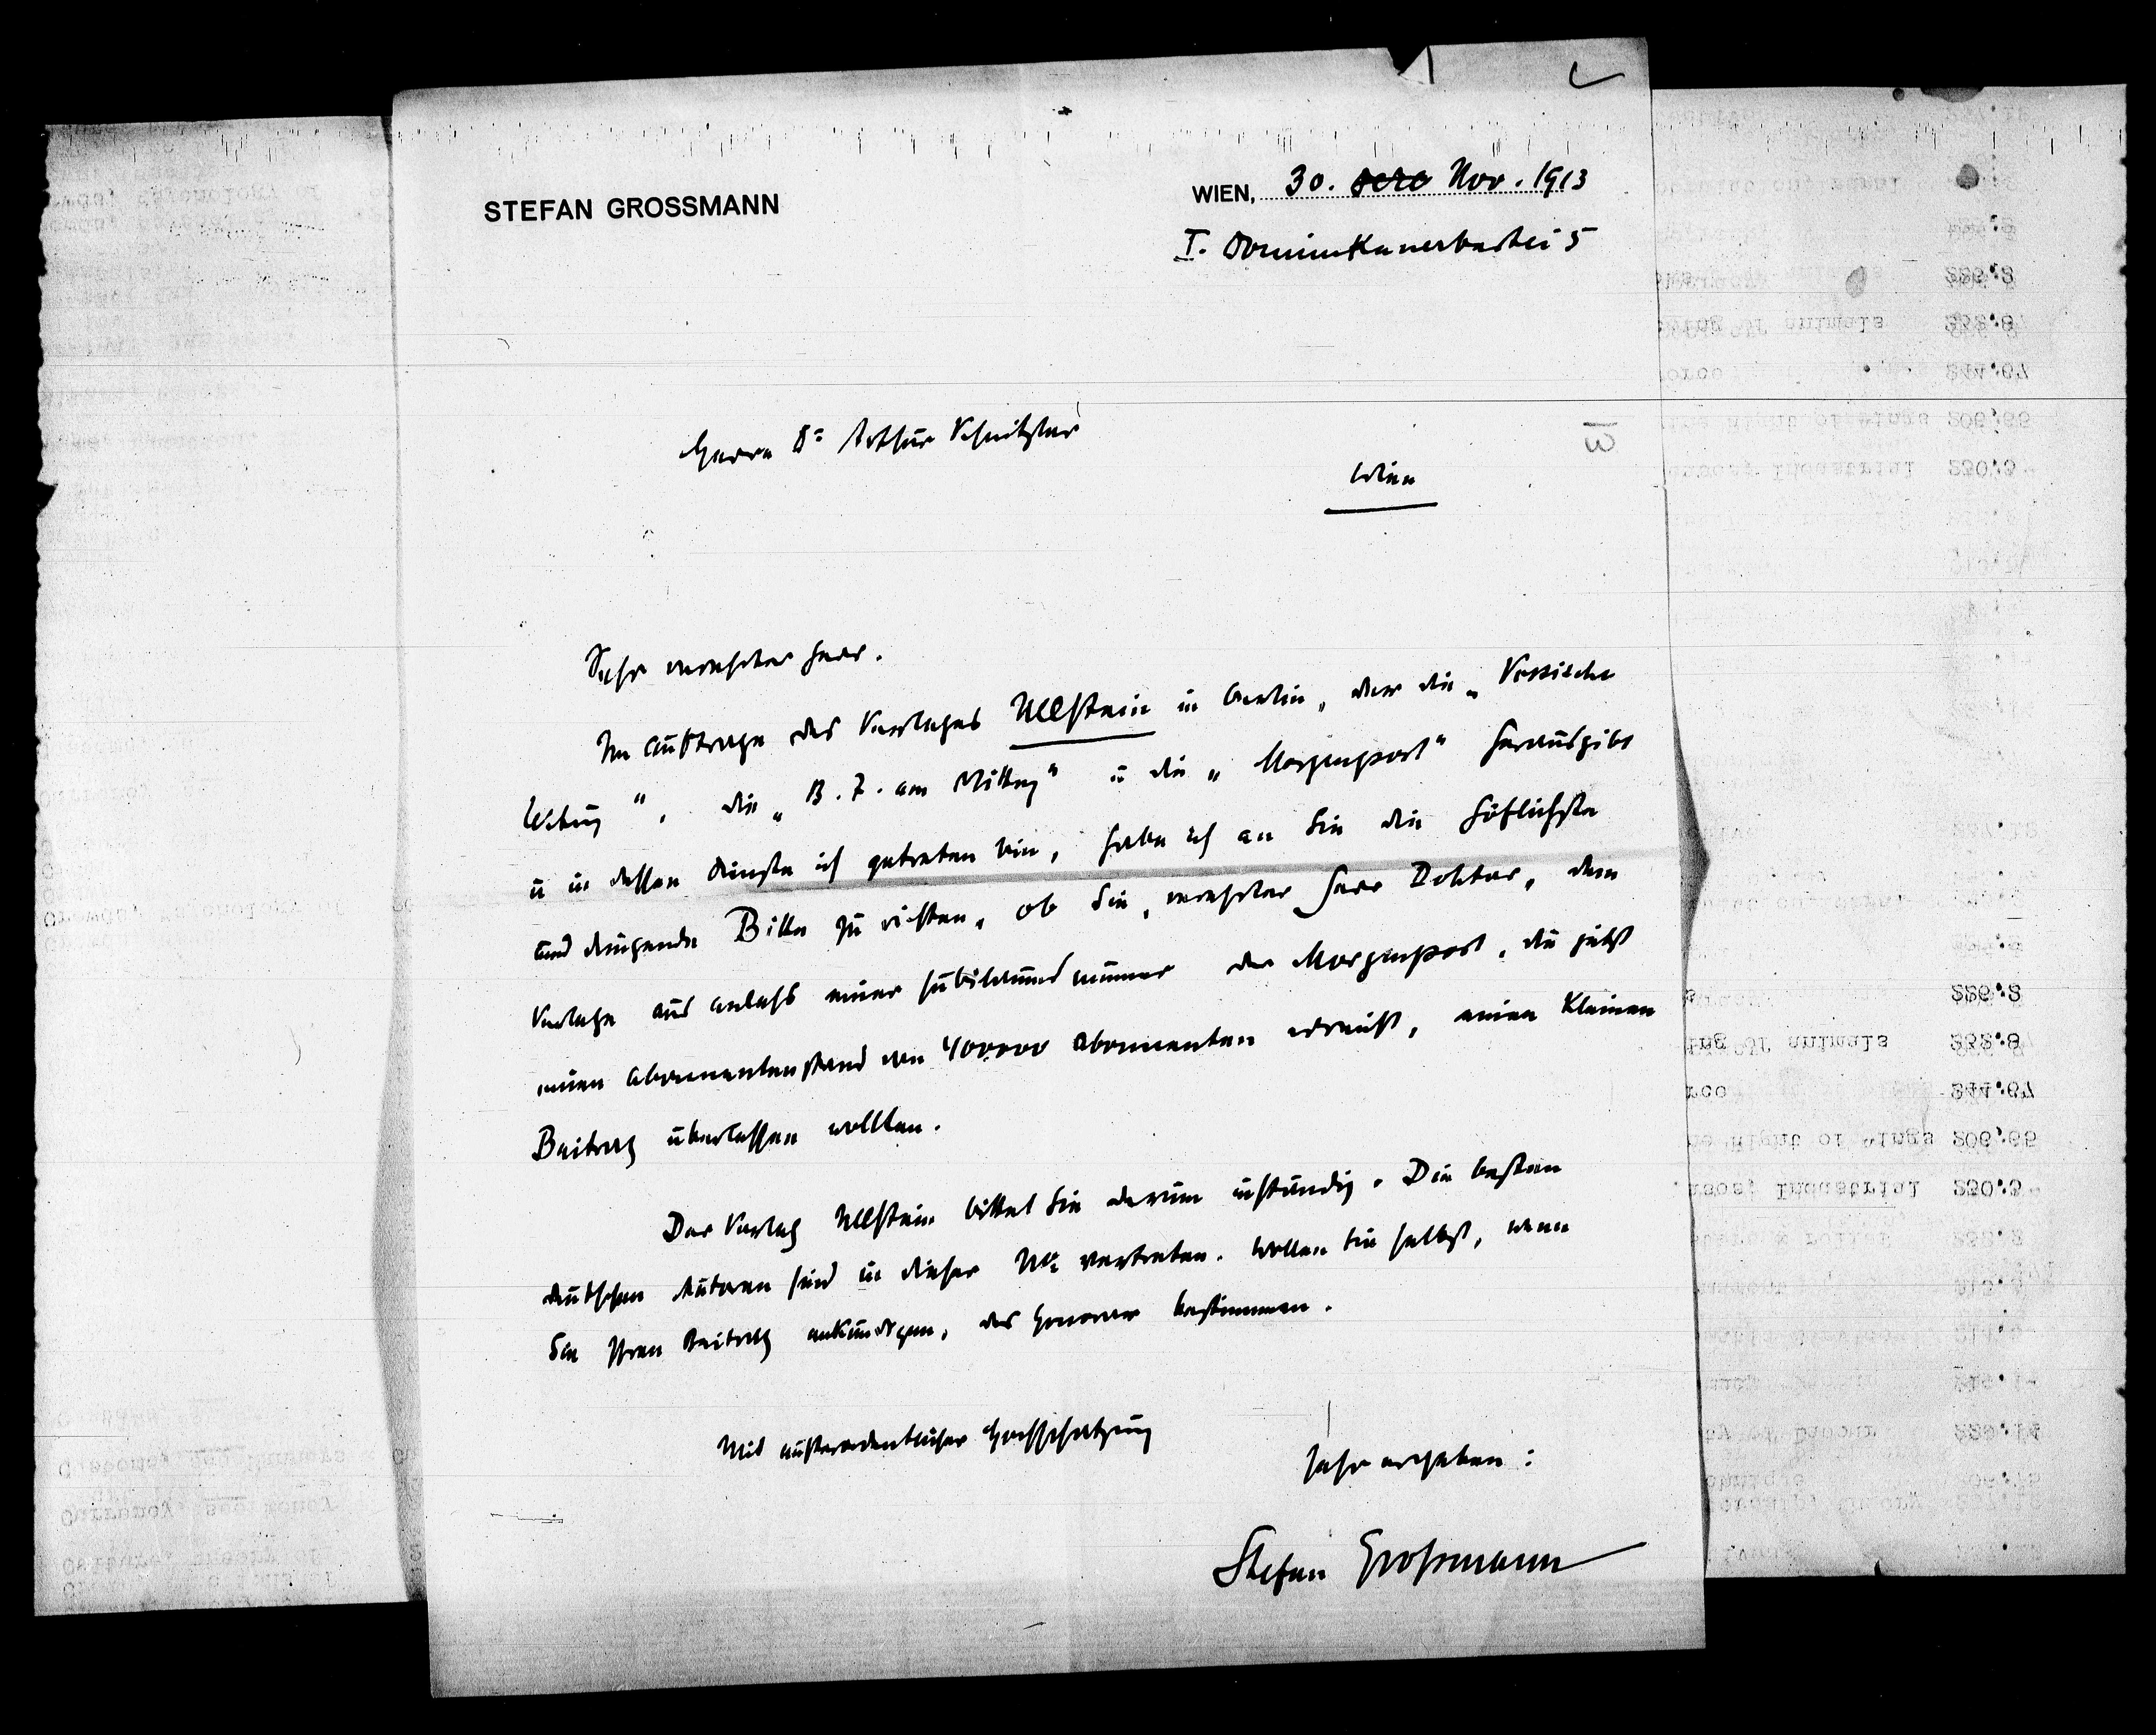 STEFAN GROSSMANN
WIEN, 30. Nov. 1913
I. Dominikanerbastei 5
Herrn Dr Arthur Schnitzler
Wien
Sehr verehrter Herr.
Im Auftrage des Verlages Ullstein in Berlin, der die „Vossische
Zeitung", die „B. Z. am Mittag" u die „Morgenpost" herausgibt
u in dessen Dienste ich getreten bin, habe ich an Sie die höflichste
und dringende Bitte zu richten, ob Sie, verehrter Herr Doktor, dem
Verlage aus Anlaß einer Jubiläumsnummer der Morgenpost, die jetzt
einen Abonnentenstand von 400000 Abonnenten erreicht, einen kleinen
Beitrag überlassen wollten.
Der Verlag Ullstein bittet Sie darum inständig. Die besten
deutschen Autoren sind in dieser Nr vertreten. Wollen Sie selbst, wenn
Sie Ihren Beitrag ankündigen, das Honorar bestimmen.
Mit außerordentlicher Hochschätzung
sehr ergeben:
Stefan Großmann